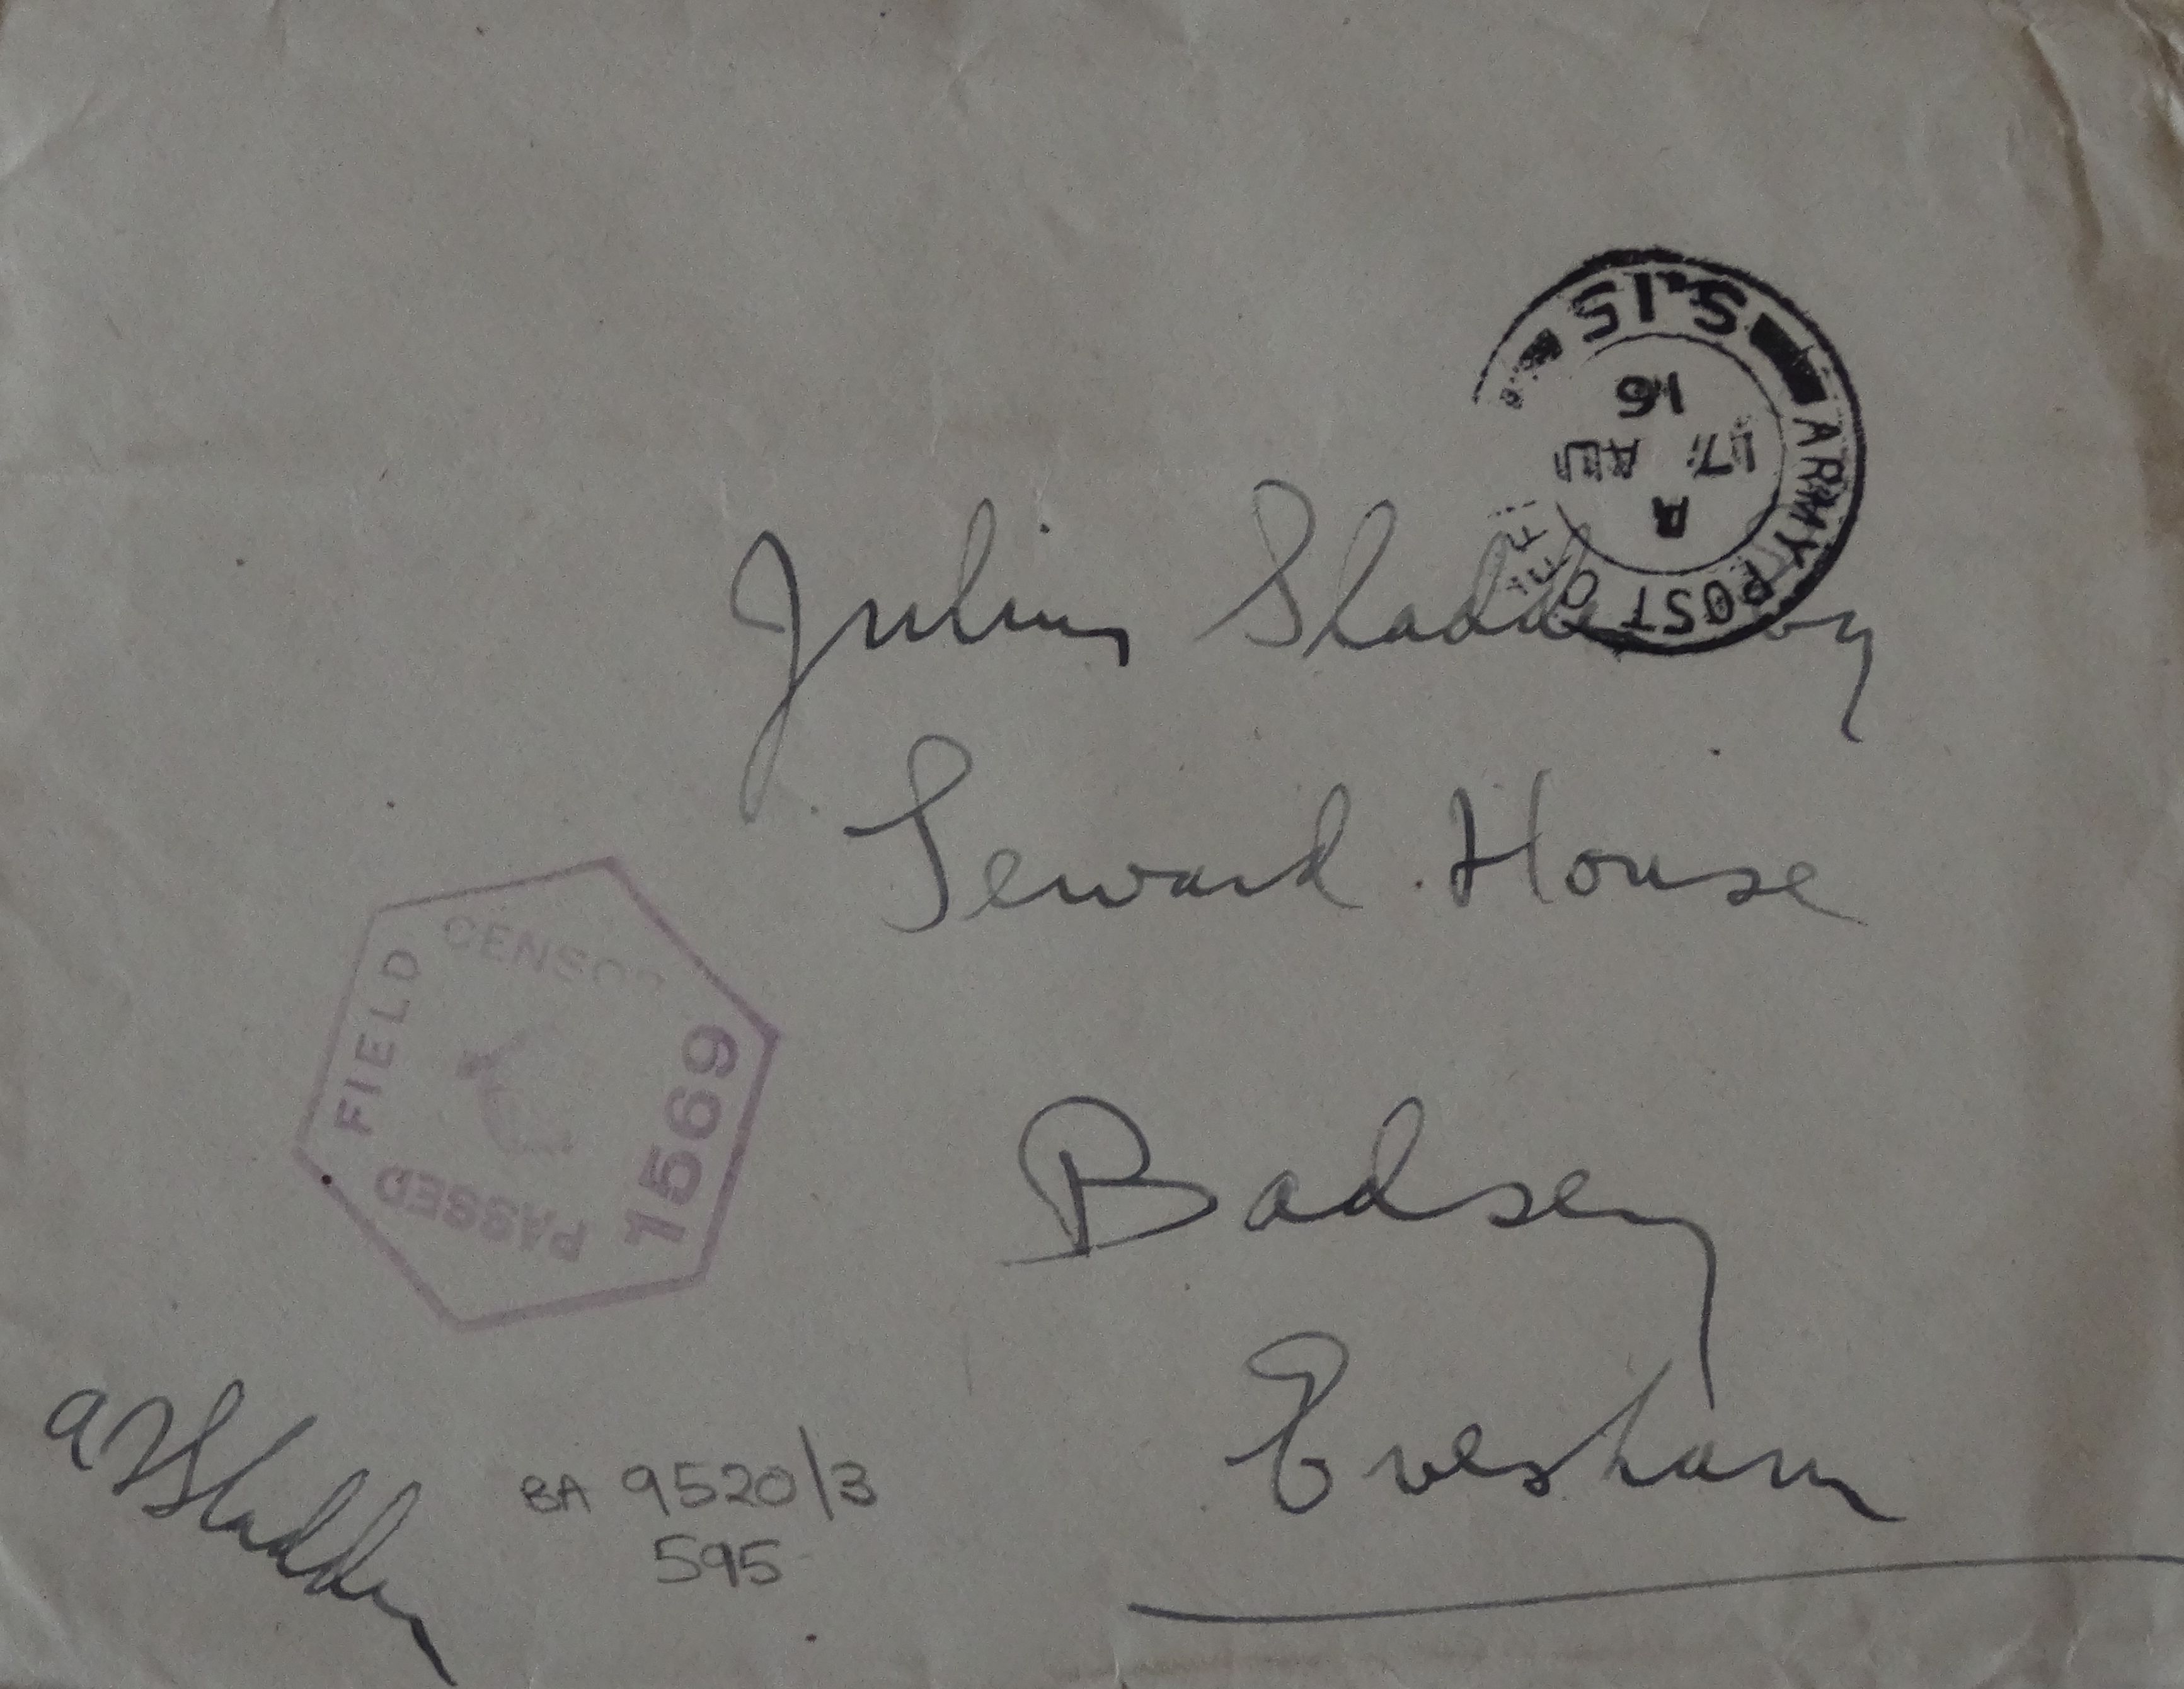 ARMY POST OFFI
A
17 AU
16
S.15
Julius Sladden Esq
Seward House
Badsey
Evesham
FIELD CENSOR
PASSED
1569
A F Sladden
BA 9520/3
595